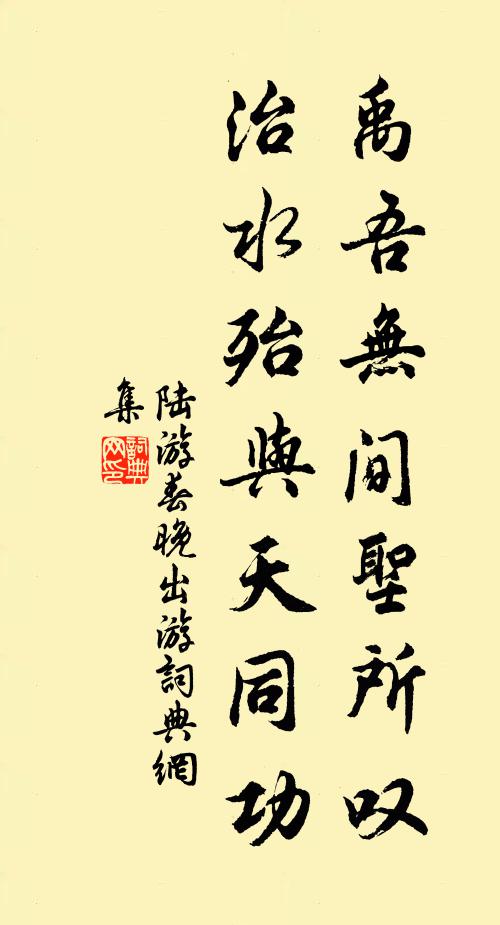 禹吾無間聖所叹
治水殆與天同功
陆游春晚出游詞典網
集
詞典
网印